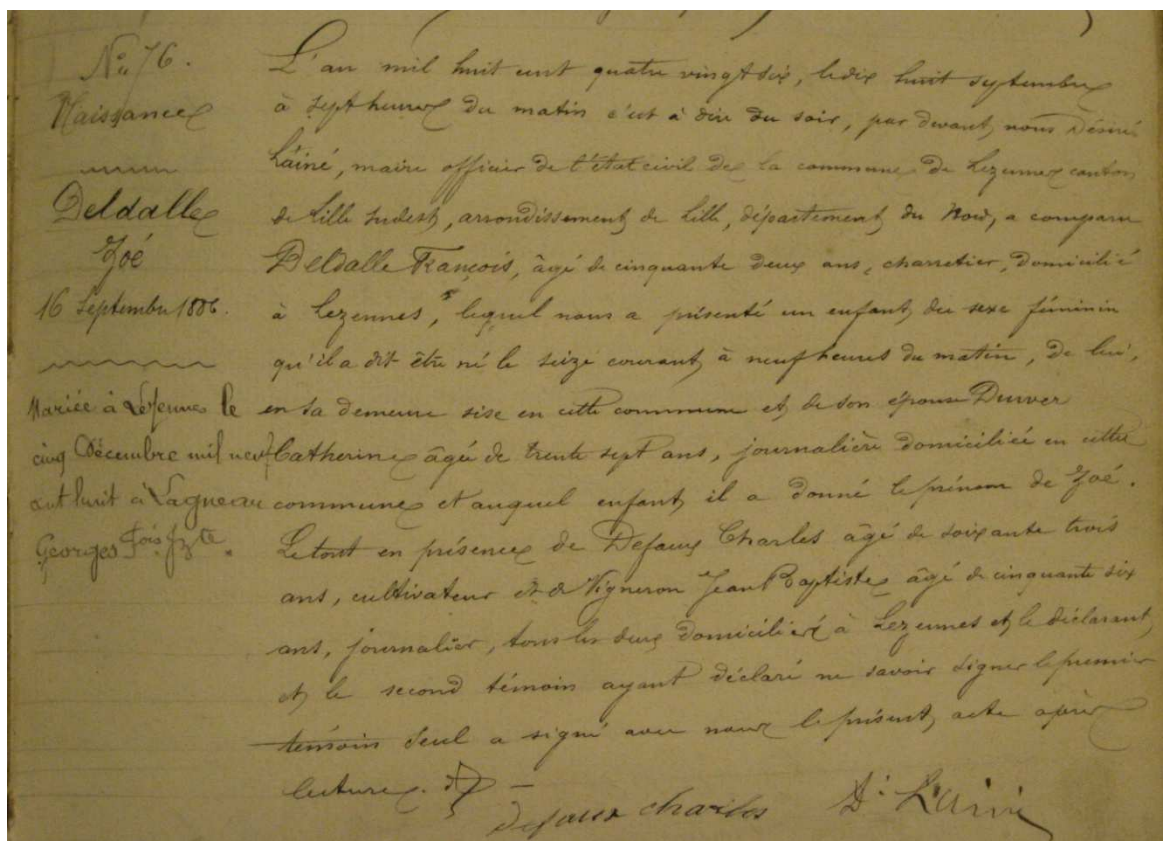 No 76.
Naissance
Deldalle
Zoé
16 Septembre 1886.
Mariée à Lezennes le
cinq Décembre mil neuf
cent huit à Lagneau
Georges fois
L'an mil huit cent quatre vingt six, le dix huit septembre
à sept heures du matin c'est à dire du soir, par devant nous Désiré
Lainé, maire officier de l'état civil de la commune de Lezennes canton
de Lille sudest, arrondissement de Lille, département du Nord, a comparu
Deldalle François, âgé de cinquante deux ans, charretier, domicilié
à Lezennes, lequel nous a présenté un enfant du sexe féminin
qu'il a dit être né le seize courant à neuf heures du matin, de lui,
en sa demeure sise en cette commune et de son épouse
Catherine âgée de trente sept ans, journalière domiciliée en cette
commune et auquel enfant il a donné le prénom de Zoé.
Le tout en présence de Defaux Charles âgé de soixante trois
ans, cultivateur et de Vigneron Jean Baptiste âgé de cinquante six
ans, journalier, tous les deux domiciliés à Lezennes et le déclarant
et le second témoin ayant déclaré ne savoir signer le premier
témoin seul a signé avec nous le présent acte après
lecture.
defaux charles D. Lainé